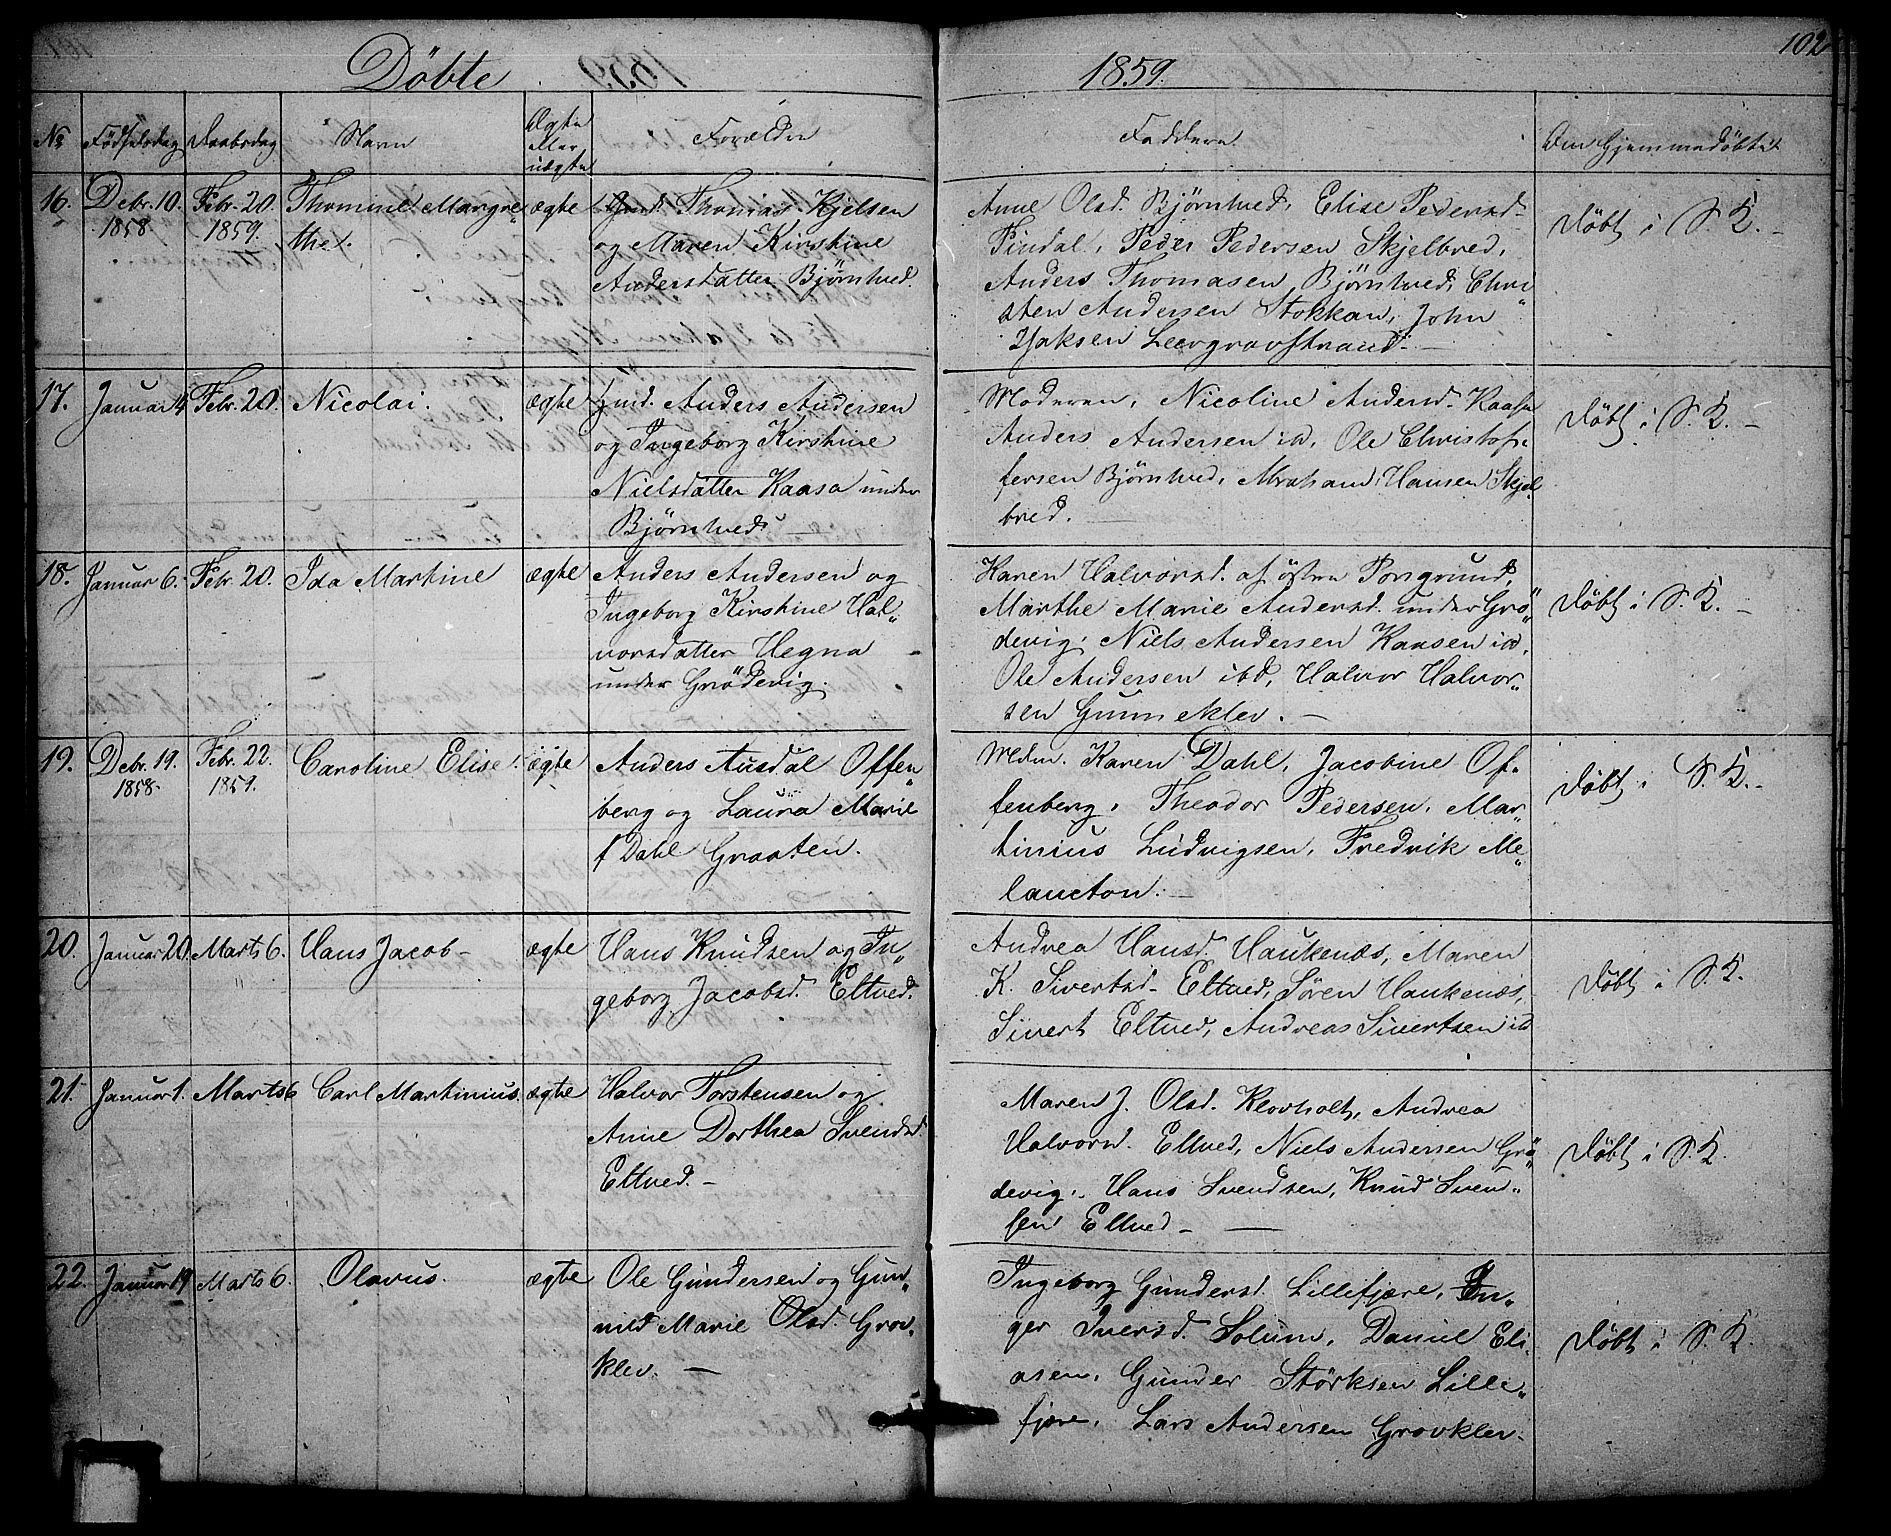 102
Döbte
1859.
No
Födselsdag
Daabsdag
Navn
Ægte
eller
uægte
Forældre
Faddere
Om Hjemmedöbt
16.
Debr. 10.
1858
Febr. 20.
1859.
Thomine Margre„
the.
ægte
Thomas Kjelsen
og Maren Kirstine
Andersdatter Björntved.
Anne Olsd. Björntved, Elise Pedersd.
Pindal, Peder Pedersen Skjelbred,
Anders Thomasen Björntved, Chri„
sten Andersen Stokkan, John
Isaksen Leergravstrand.
Döbt i S. K. –
17.
Januar 4
Febr. 20.
Nicolai.
ægte
Gmd. Anders Andersen
og Ingeborg Kirstine
Nielsdatter Kaasa under
Björntved –
Moderen, Nicoline Andersd. Kaasa
Anders Andersen id, Ole Christof„
fersen Björntved, Abraham Hansen Skjel
bred.
Döbt i S. K. –
18.
Januar 6.
Febr. 20.
Ida Martine
ægte
Anders Andersen og
Ingeborg Kirstine Hal„
vorsdatter Hegna
under Grödevig.
Karen Halvorsd. af östre Porsgrund,
Marthe Marie Andersd. under Grö„
devig, Niels Andersen Kaasen id,
Ole Andersen ibd, Halvor Halvor„
sen Gunneklev. –
Döbt i S. K. –
19.
Debr. 19.
1858.
Febr. 22.
1859.
Caroline Elise.
ægte
Anders Ausdal Offen„
berg og Laura Marie
f Dahl Graaten.
Mdm. Karen Dahl, Jacobine Of„
fenberg, Theodor Pedersen, Mar„
tinius Ludvigsen, Fredrik Me„
lancton. –
Döbt i S. K. –
20.
Januar 20.
Marts 6.
Hans Jacob –
ægte
Hans Knudsen og In„
geborg Jacobsd. Eltved.
Andrea Hansd. Haukenæs, Maren
K. Sivertsd. Eltved, Sören Haukenæs,
Sivert Eltved, Andreas Sivertsen id
Döbt i S. K.
21.
Januar 1.
Marts 6
Carl Martinius.
ægte
Halvor Torstensen og
Anne Dorthea Svendsd.
Eltved. –
Maren J. Olsd. Klovholt, Andrea
Halvorsd. Eltved, Niels Andersen Grö„
devig, Hans Svendsen, Knud Sven„
sen Eltved –
Döbt i S. K.
22.
Januar 19
Marts 6.
Olavus.
ægte
Ole Gundersen og Gun„
nild Marie Olsd. Grov„
klev. –
Ingeborg Gundersd. Lillefjære, In„
ger Iversd. Solum, Daniel Eli„
asen, Gunder Störksen Lille„
fjære, Lars Andersen Grovklev.
Döbt i S. K.